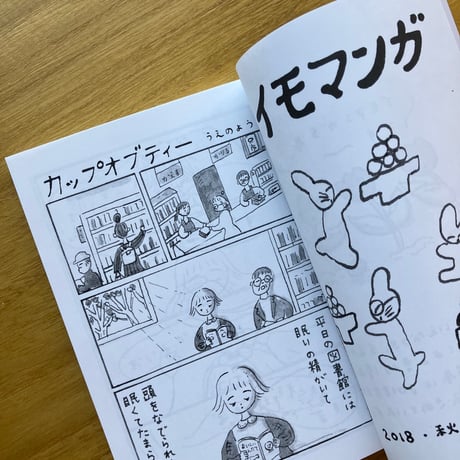 カップオブティー
うえのよう
イモマンガ
平日の図書館には
眠りの精がいて
頭をなでられ
眠くてたまら
2018・秋